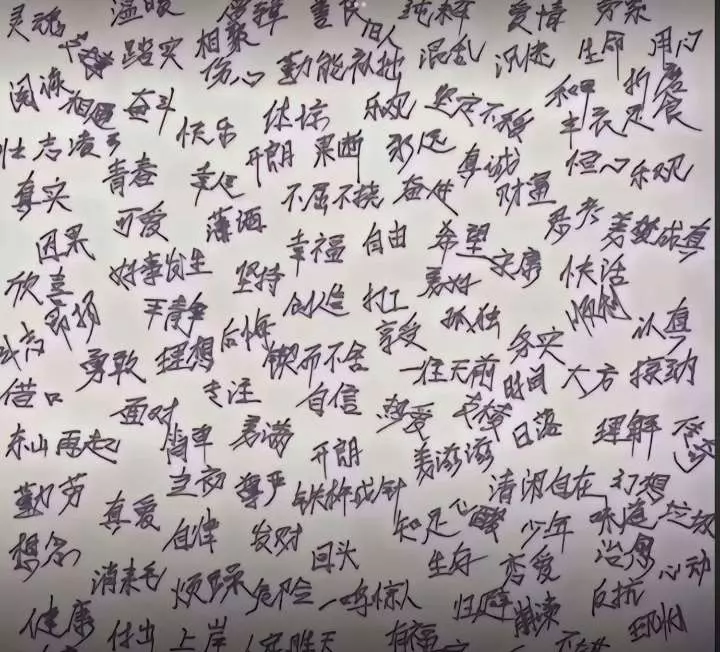 灵魂 温暖 善良 纯粹 爱情
踏实 相聚 旧人 混乱 生命
伤心
阅海 相遇 奋斗 快乐 体谅 乐观 坚定不移 和平 折磨
壮志凌云 开朗 果断 丰衣足食
真实 青春 不屈不挠 真诚 财富 恒心 乐观
可爱 潇洒 思考 美梦成真
因果 幸福 自由 希望
欣喜 好事发生 坚持 美好 安康 快活
平静 创造 打工 孤独 顺利
后悔 享受 务实 认真
勇敢 理想 锲而不舍 一往无前 时间 大方 接纳
借口 专注 自信 热爱
面对 支撑 日落 理解
东山再起 简单 美满 开朗 美滋滋
勤劳 之初 尊严 铁杵成针 清闲自在 幻想
真爱 自律 发财 知足 心酸 少年 味道 垃圾
想念 回头 生存 恋爱 治愈 心动
烦躁 危险 一鸣惊人 反抗
健康 付出 上岸 人定胜天 有福